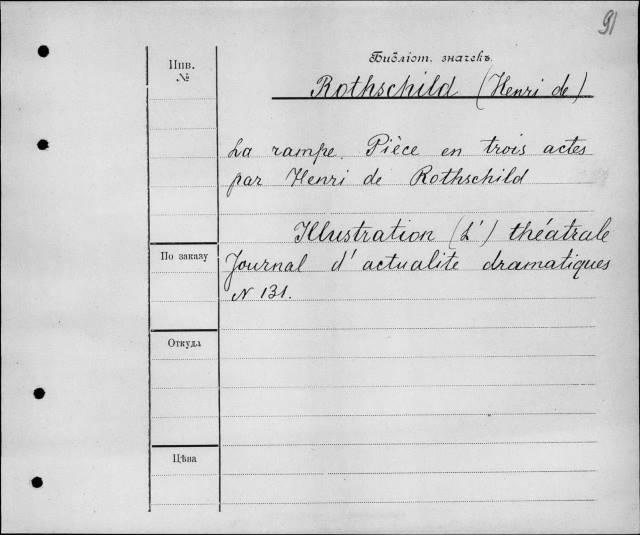 91
Библіот. значекъ
Инв.
№
Rothschild (Henri de)
La rampe. Pièce en trois actes
par Henri de Rothschild
Illustration (L') théatrale
По заказу
Journal d'actualite dramatiques
N 131.
Откуда
Цѣна